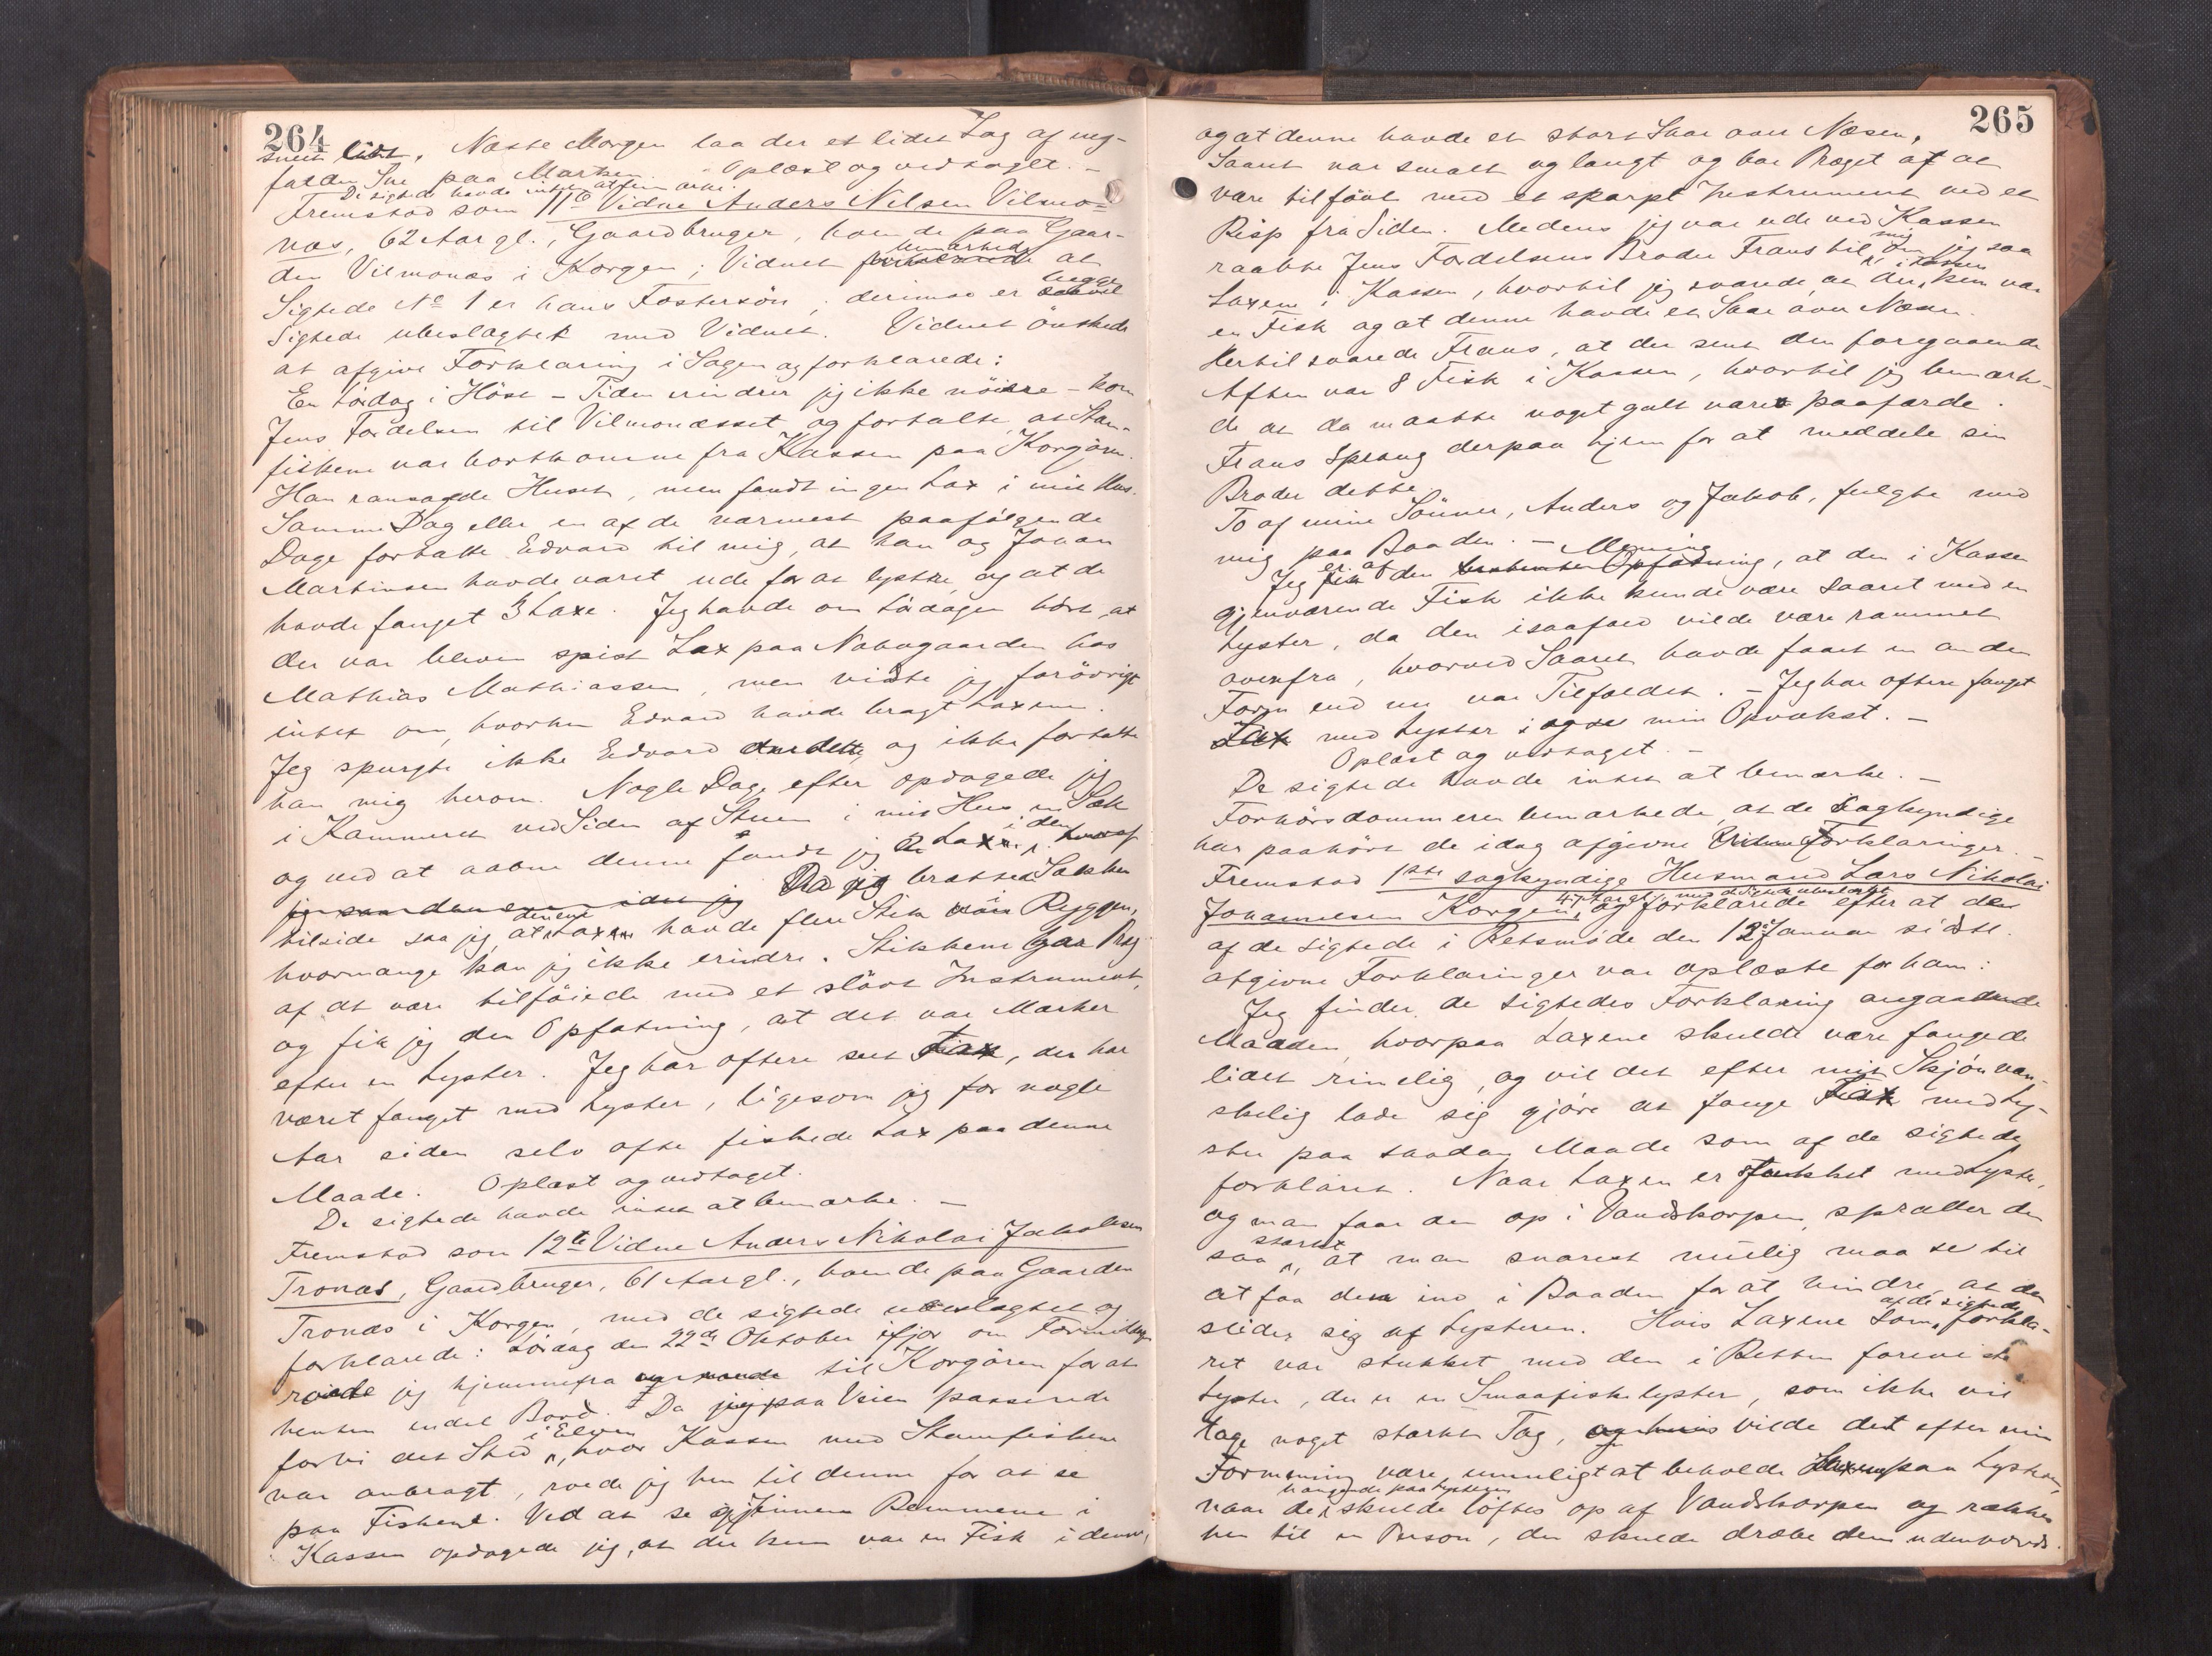 264
sneet lidt. Næste Morgen laa der et lidet Lag af nyg-
falden Sne paa Marken. Oplæst og vedtaget. –
De sigtede havde intet at bemærke.
Fremstod som 11te Vidne Anders Nilsen Vilmo-
næs, 62 Aar gl., Gaardbruger, boende paa Gaar-
den Vilmonæs i Korgen; Vidnet bemærkede at
Sigtede No 1 er hans Fostersön, derimod er begge
Sigtede ubeslægtet med Vidnet. Vidnet önskede
at afgive Forklaring i Sagen og forklarede:
En Lördag i Höst – Tiden erindrer jeg ikke nöiere – kom
Jens Fordelsen til Vilmonæsset og fortalte, at Stam-
fiskene var bortkomne fra Kassen paa Korgören.
Han ransagede Huset, men fandt ingen Lax i mit Hus.
Samme Dag eller en af de nærmest paafölgende
Dage fortalte Edvard til mig, at han og Johan
Martinsen havde været ude for at lystre, og at de
havde fanget 3 Laxe. Jeg havde om Lördagen hört, at
der var bleven spist Lax paa Nabogaarden hos
Mathias Mathiassen, men vidste jeg forövrigt
intet om, hvorhen Edvard havde bragt Laxene.
Jeg spurgte ikke Edvard om dette, og ikke fortalte
han mig herom. Nogle Dage efter opdagede jeg
i Kammeret ved Siden af Stuen i mit Hus en Sæk
og ved at aabne denne fandt jeg 2 Laxe i den
jeg saa den ene idet jeg Da jeg brættet Sækken
tilside saa jeg, at den ene Lax havde flere Stik i Ryggen,
hvormange kan jeg ikke erindre. Stikkene bar Præg
af at være tilföiede med et slövt Instrument,
og fik jeg den Opfatning, at det var Mærker
efter en Lyster. Jeg har oftere seet Lax, der har
været fanget med Lyster, ligesom jeg for nogle
Aar siden selv ofte fiskede Lax paa denne
Maade. Oplæst og vedtaget.
De sigtede havde intet at bemærke. –
Fremstod som 12te Vidne Anders Nikolai Jakobsen
Tronæs, Gaardbruger, 61 Aar gl., boende paa Gaarden
Tronæs i Korgen, med de sigtede ubeslægtet og
forklarede: Lördag den 22de Oktober ifjor om Formiddagen
roede jeg hjemmefra til Korgören for at
hente endel Bord. Da jeg paa Veien passerede
forbi det Sted i Elven, hvor Kassen med Stamfiskene
var anbragt, roede jeg hen til denne for at se
paa Fiskene. Ved at se gjennem Remmene i
Kassen opdagede jeg, at der kun var en Fisk i denne,
265
og at denne havde et stort Saar over Næsen.
Saaret var smalt og langt og bar Præget af at
være tilföiet med et skarpt Instrument ved et
Risp fra Siden. Medens jeg var ude ved Kassen
raabte Jens Fordelsens Broder Frans til mig om jeg saa
Laxene i Kassen, hvortil jeg svarede, at der i Kassen kun var
en Fisk og at denne havde et Saar over Næsen.
Hertil svarede Frans, at der sent den foregaaende
Aften var 8 Fisk i Kassen, hvortil jeg bemærke-
de at da maatte noget galt være paafærde.
Frans sprang derpaa hjem for at meddele sin
Broder dette.
To af mine Sönner, Anders og Jakob, fulgte med
mig paa Baaden. –
Jeg er af den Mening, at den i Kassen
gjenværende Fisk ikke kunde være saaret med en
Lyster, da den isaafald vilde være rammet
ovenfra, hvorved Saaret havde faaet en anden
Form end nu var Tilfældet. – Jeg har oftere fanget
Lax med Lyster i min Opvækst. –
Oplæst og vedtaget. –
De sigtede havde intet at bemærke. –
Forhörsdommeren bemærkede, at de sagkyndige
har paahört de idag afgivne Forklaringer. –
Fremstod 1ste sagkyndige Husmand Lars Nikolai
Johannesen Korgen, 47 Aar gl., med de Sigtede ubeslægtet og forklarede efter at de
af de sigtede i Retsmöde den 12te Januar sidste
afgivne Forklaringer var oplæste for ham:
Jeg finder de sigtedes Forklaring angaaende
Maaden, hvorpaa Laxene skulde være fangede
lidet rimelig, og vil det efter mit Skjön van-
skelig lade sig gjöre at fange Lax med Ly-
ster paa saadan Maade som af de sigtede
forklaret. Naar Laxen er stukket med Lyster,
og man faar den op i Vandskorpen, spræller den
saa stærkt, at man snarest mulig maa se til
at faa den ind i Baaden for at hindre, at den
slider sig af Lysteren. Hvis Laxene som af de sigtede forkla-
ret var stukket med den i Retten foreviste
Lyster, der er en Smaafiskelyster, som ikke vil
tage noget stærkt Tag, vilde det efter min
Formening være umuligt at beholde Laxen paa Lysteren,
naar de hængende paa Lysteren skulde löftes op af Vandskorpen og rækkes
hen til en Person, der skulde dræbe dem udenbords.